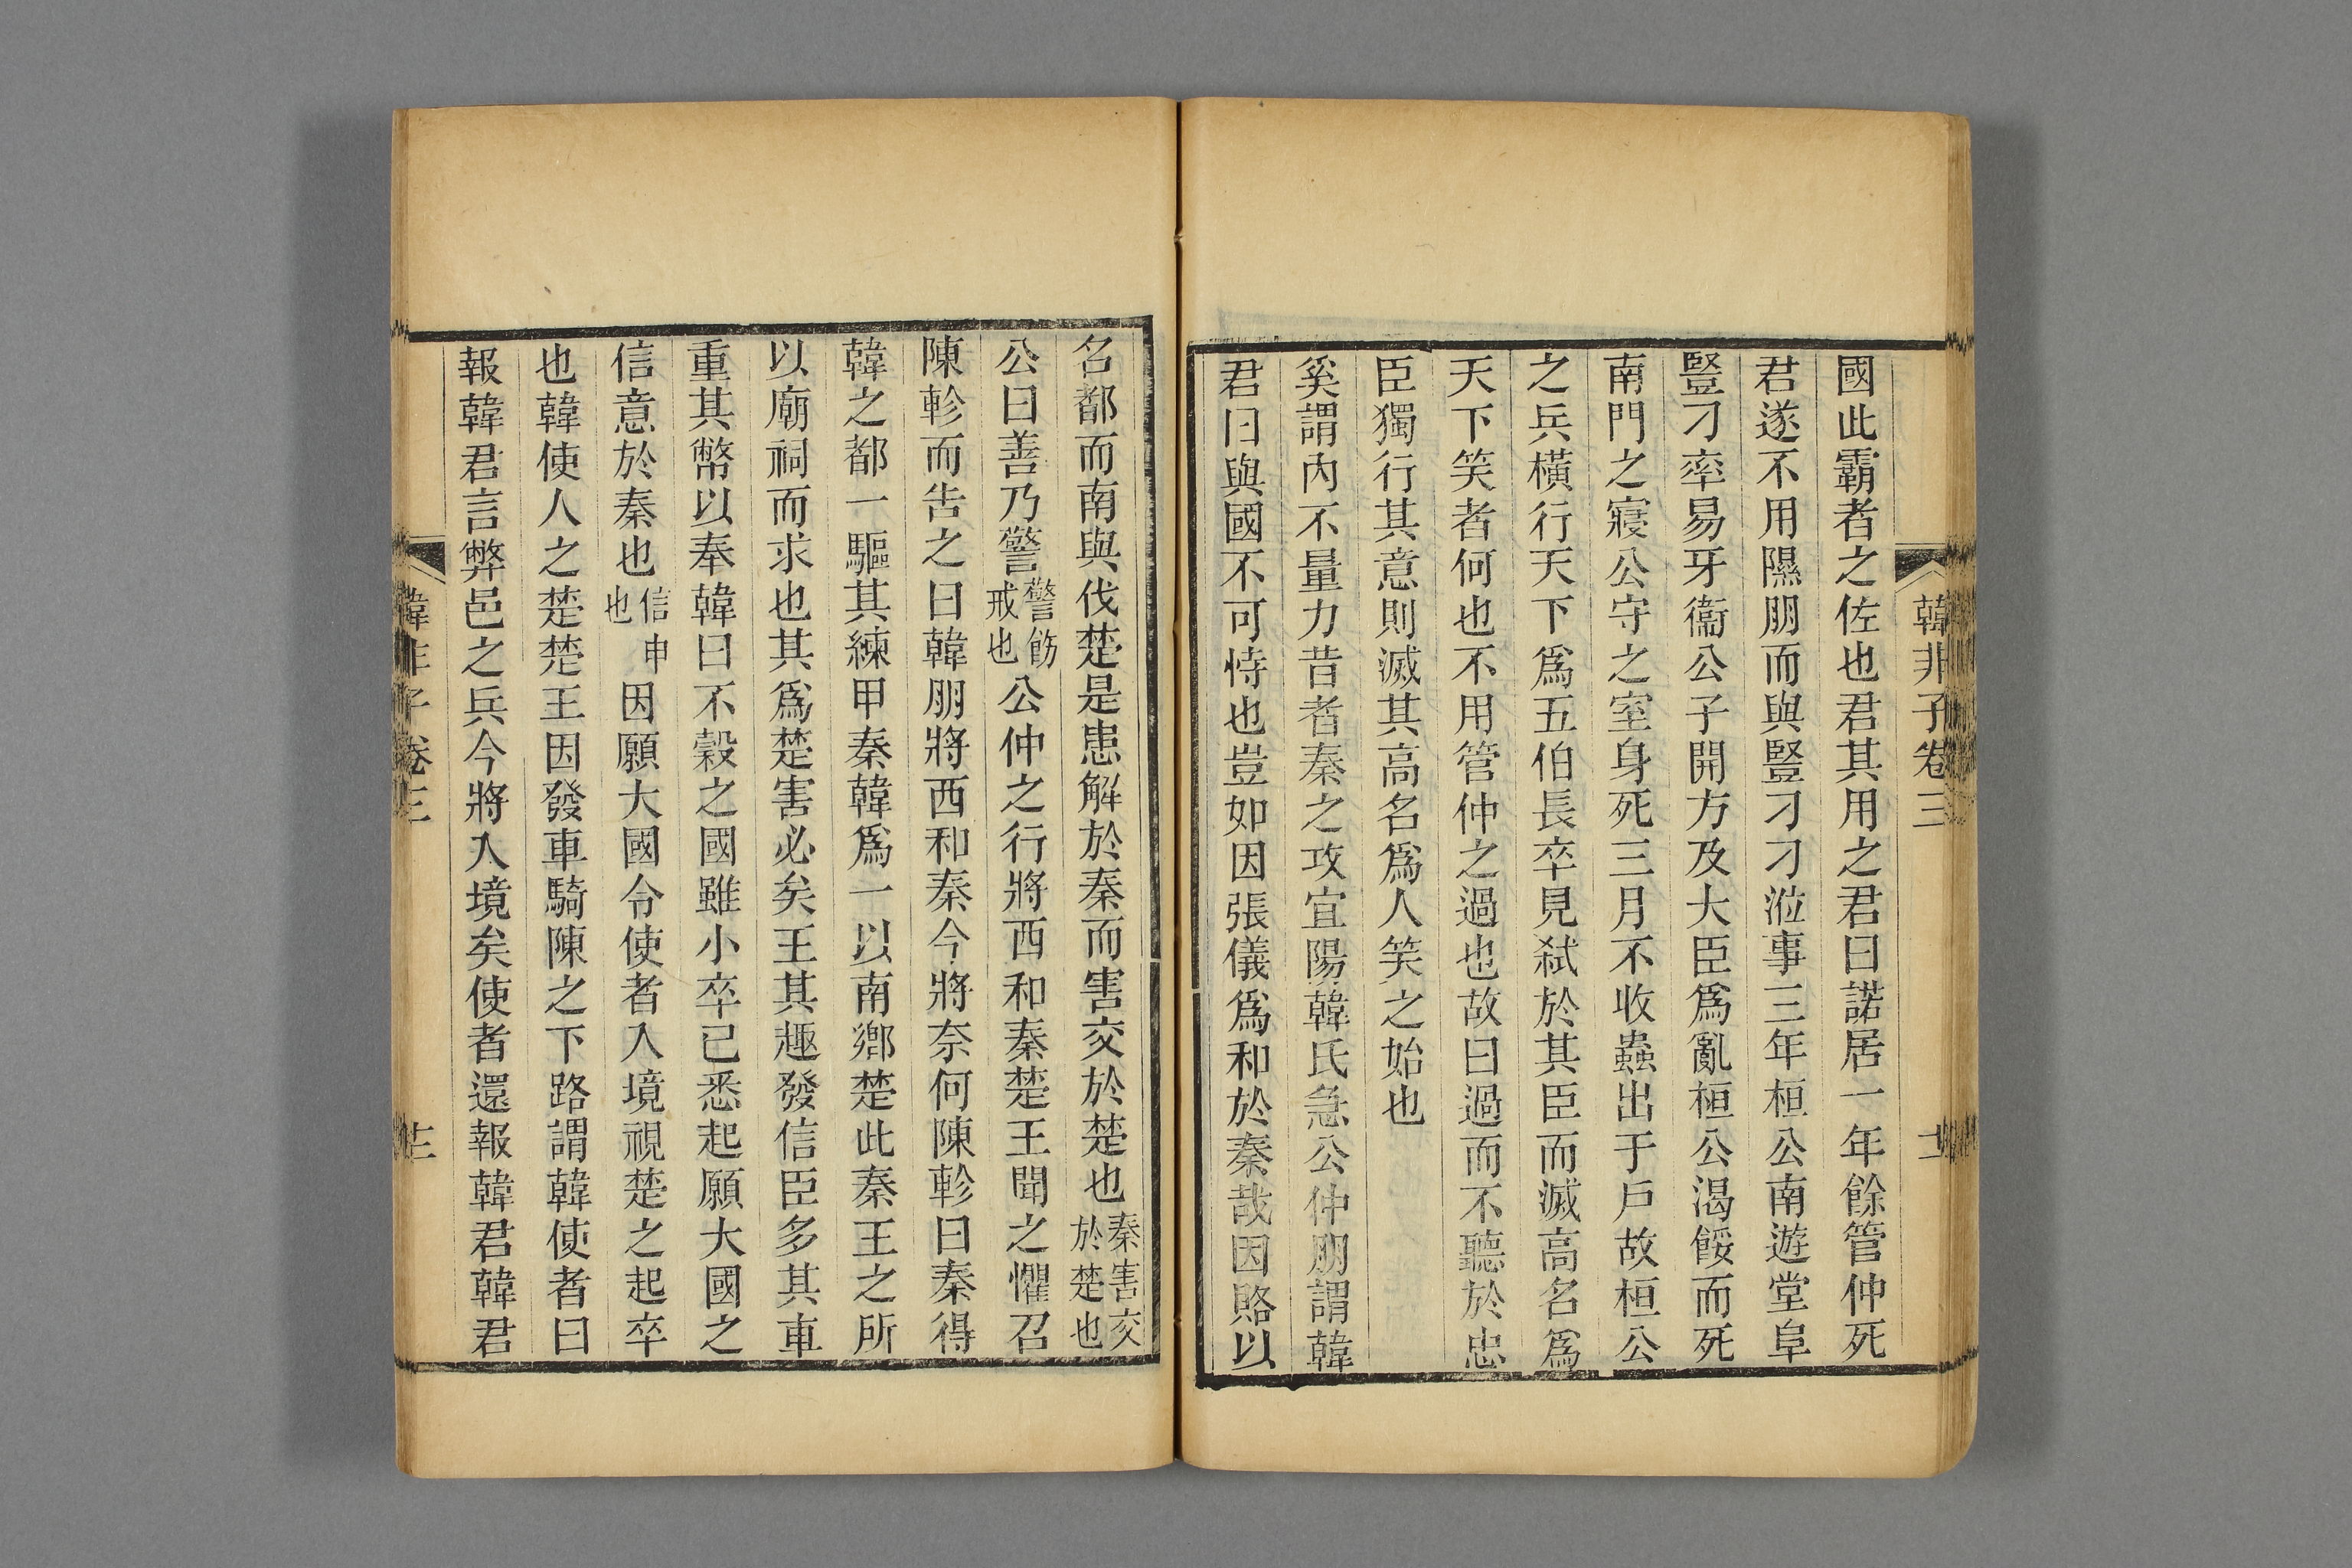 韓非子卷三
國此霸者之佐也君其用之君曰諾居一年餘管仲死
君遂不用隰朋而與豎刁刁涖事三年桓公南遊堂阜
豎刁率易牙衞公子開方及大臣爲亂桓公渴餒而死
南門之寢公守之室身死三月不收蟲出于戶故桓公
之兵橫行天下爲五伯長卒見弑於其臣而滅高名爲
天下笑者何也不用管仲之過也故曰過而不聽於忠
臣獨行其意則滅其高名爲人笑之始也
奚謂內不量力昔者秦之攻宜陽韓氏急公仲朋謂韓
君曰與國不可恃也豈如因張儀爲和於秦哉因賂以
名都而南與伐楚是患解於秦而害交於楚也秦害交於楚也
公曰善乃警警飭戒也公仲之行將西和秦楚王聞之懼召
陳軫而告之曰韓朋將西和秦今將奈何陳軫曰秦得
韓之都一驅其練甲秦韓爲一以南鄉楚此秦王之所
以廟祠而求也其爲楚害必矣王其趣發信臣多其車
重其幣以奉韓曰不穀之國雖小卒已悉起願大國之
信意於秦也信申也因願大國令使者入境視楚之起卒
也韓使人之楚楚王因發車騎陳之下路謂韓使者曰
報韓君言弊邑之兵今將入境矣使者還報韓君韓君
韓非子卷三